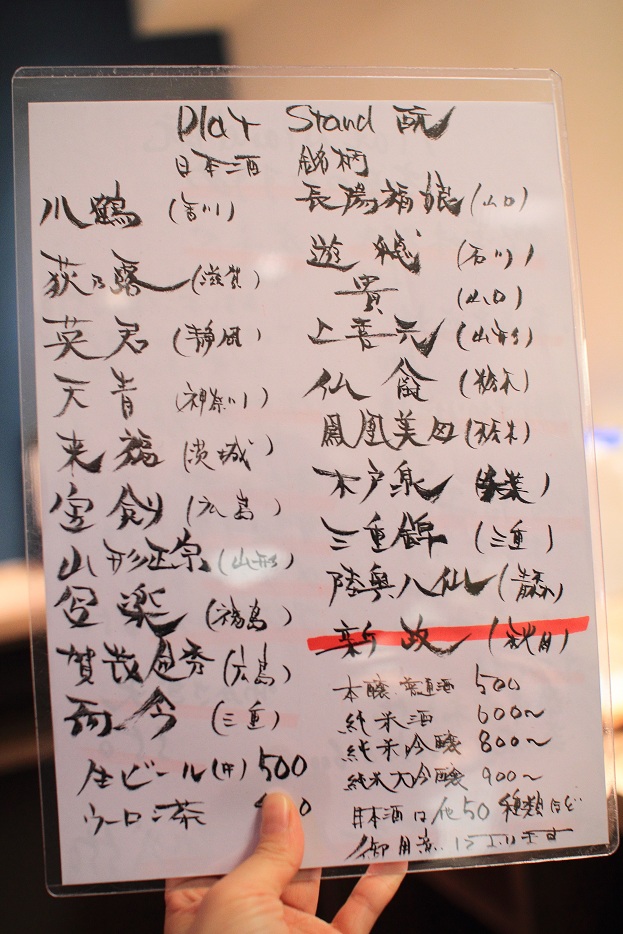 Plat Stand 酛
日本酒 銘柄
川鶴 (香川)
萩乃露 (滋賀)
英君 (静岡)
天青 (神奈川)
来福 (茨城)
宝剣 (広島)
山形正宗 (山形)
寫楽 (福島)
賀茂金秀 (広島)
而今 (三重)
生ビール(中) 500
ウーロン茶
長陽福娘 (山口)
遊穂 (石川)
貴 (山口)
上喜元 (山形)
仙禽 (栃木)
鳳凰美田 (栃木)
木戸泉 (千葉)
三重錦 (三重)
陸奥八仙 (青森)
新政 (秋田)
本醸 普通酒 500
純米酒 600〜
純米吟醸 800〜
純米大吟醸 900〜
日本酒は他50種類ほど
御用意しております